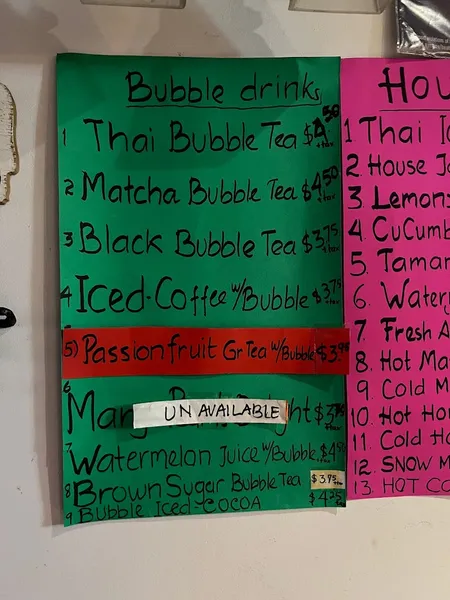 Bubble drinks
1 Thai Bubble Tea $4.50 +tax
2 Matcha Bubble Tea $4.50 +tax
3 Black Bubble Tea $3.75 +tax
4 Iced-Coffee w/Bubble $3.75 +tax
5) Passionfruit Gr Tea w/Bubble $3.95
6 UNAVAILABLE
7 Watermelon Juice w/Bubble
8 Brown Sugar Bubble Tea $3.75 +tax
9 Bubble Iced-COCOA $4.25
Hou
1 Thai Ic
2. House J
3 Lemon
4 CuCumb
5. Tamar
6. Water
7 Fresh A
8. Hot Ma
9. Cold M
10. Hot Ho
11. Cold H
12. SNOW M
13. HOT CO